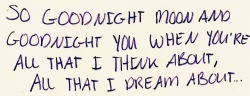 SO GOODNIGHT MOON AND
GOODNIGHT YOU WHEN YOU'RE
ALL THAT I THINK ABOUT,
ALL THAT I DREAM ABOUT...